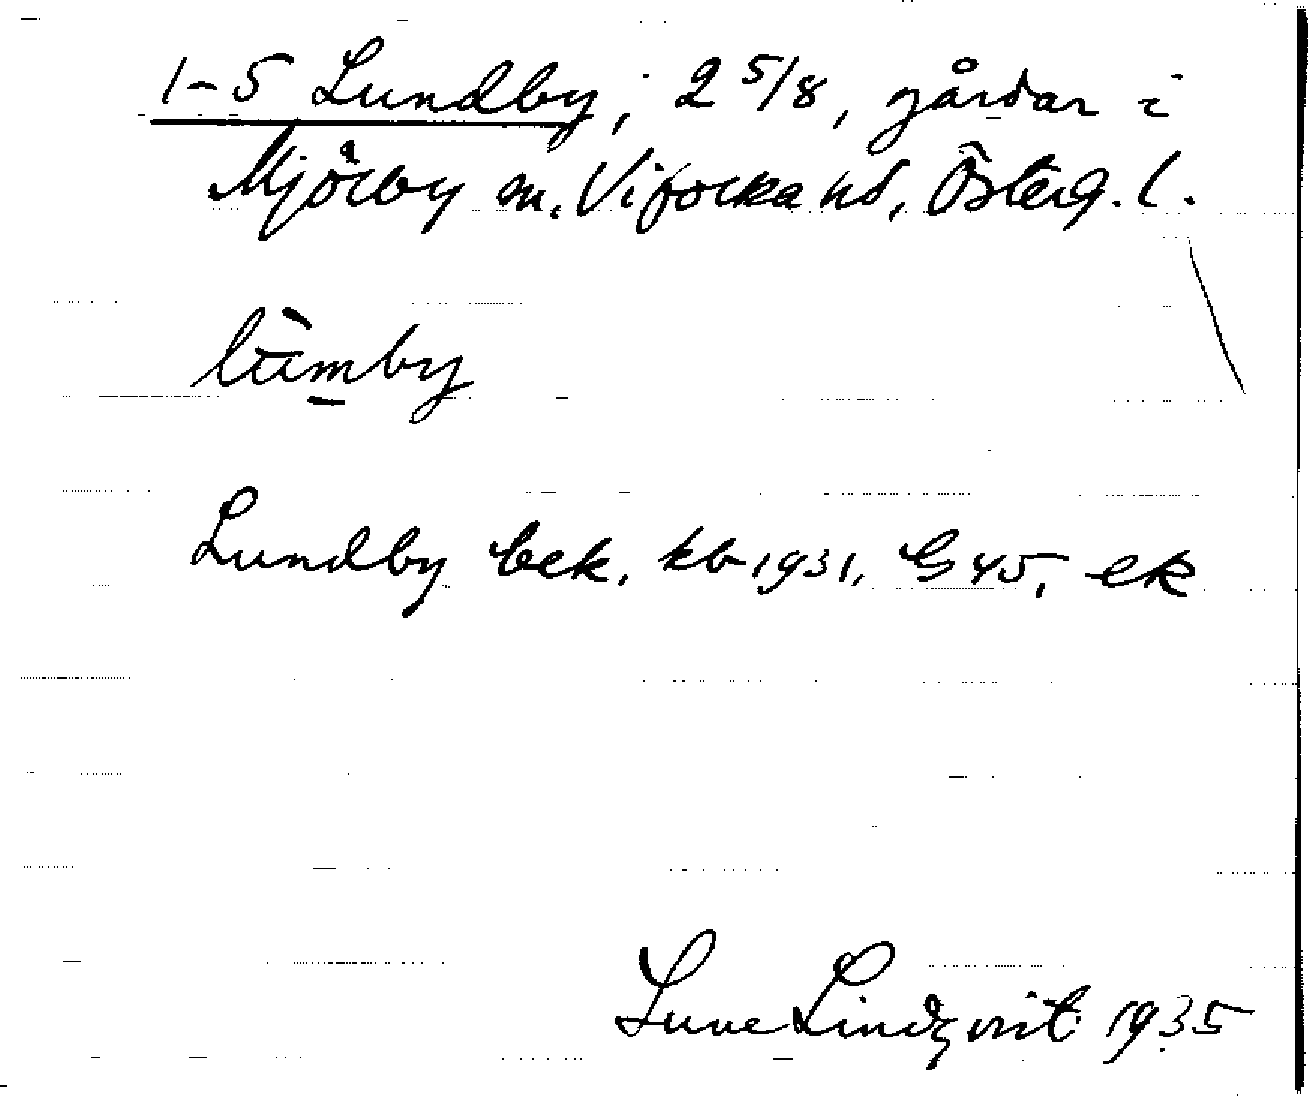 1-5 Lundby, 2 5/8, gårdar i
Mjölby sn. Vifolka hd, Österg. l.
lùmby
Lundby bek. kb 1931, G 45, ek
Sune Lindqvist 1935